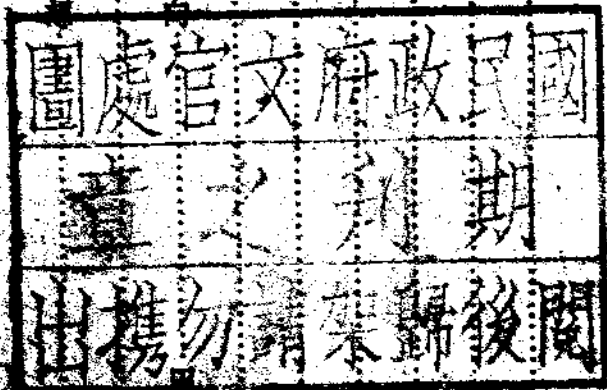 國民政府文官處圖
期刊之章
閱後歸架請勿携出